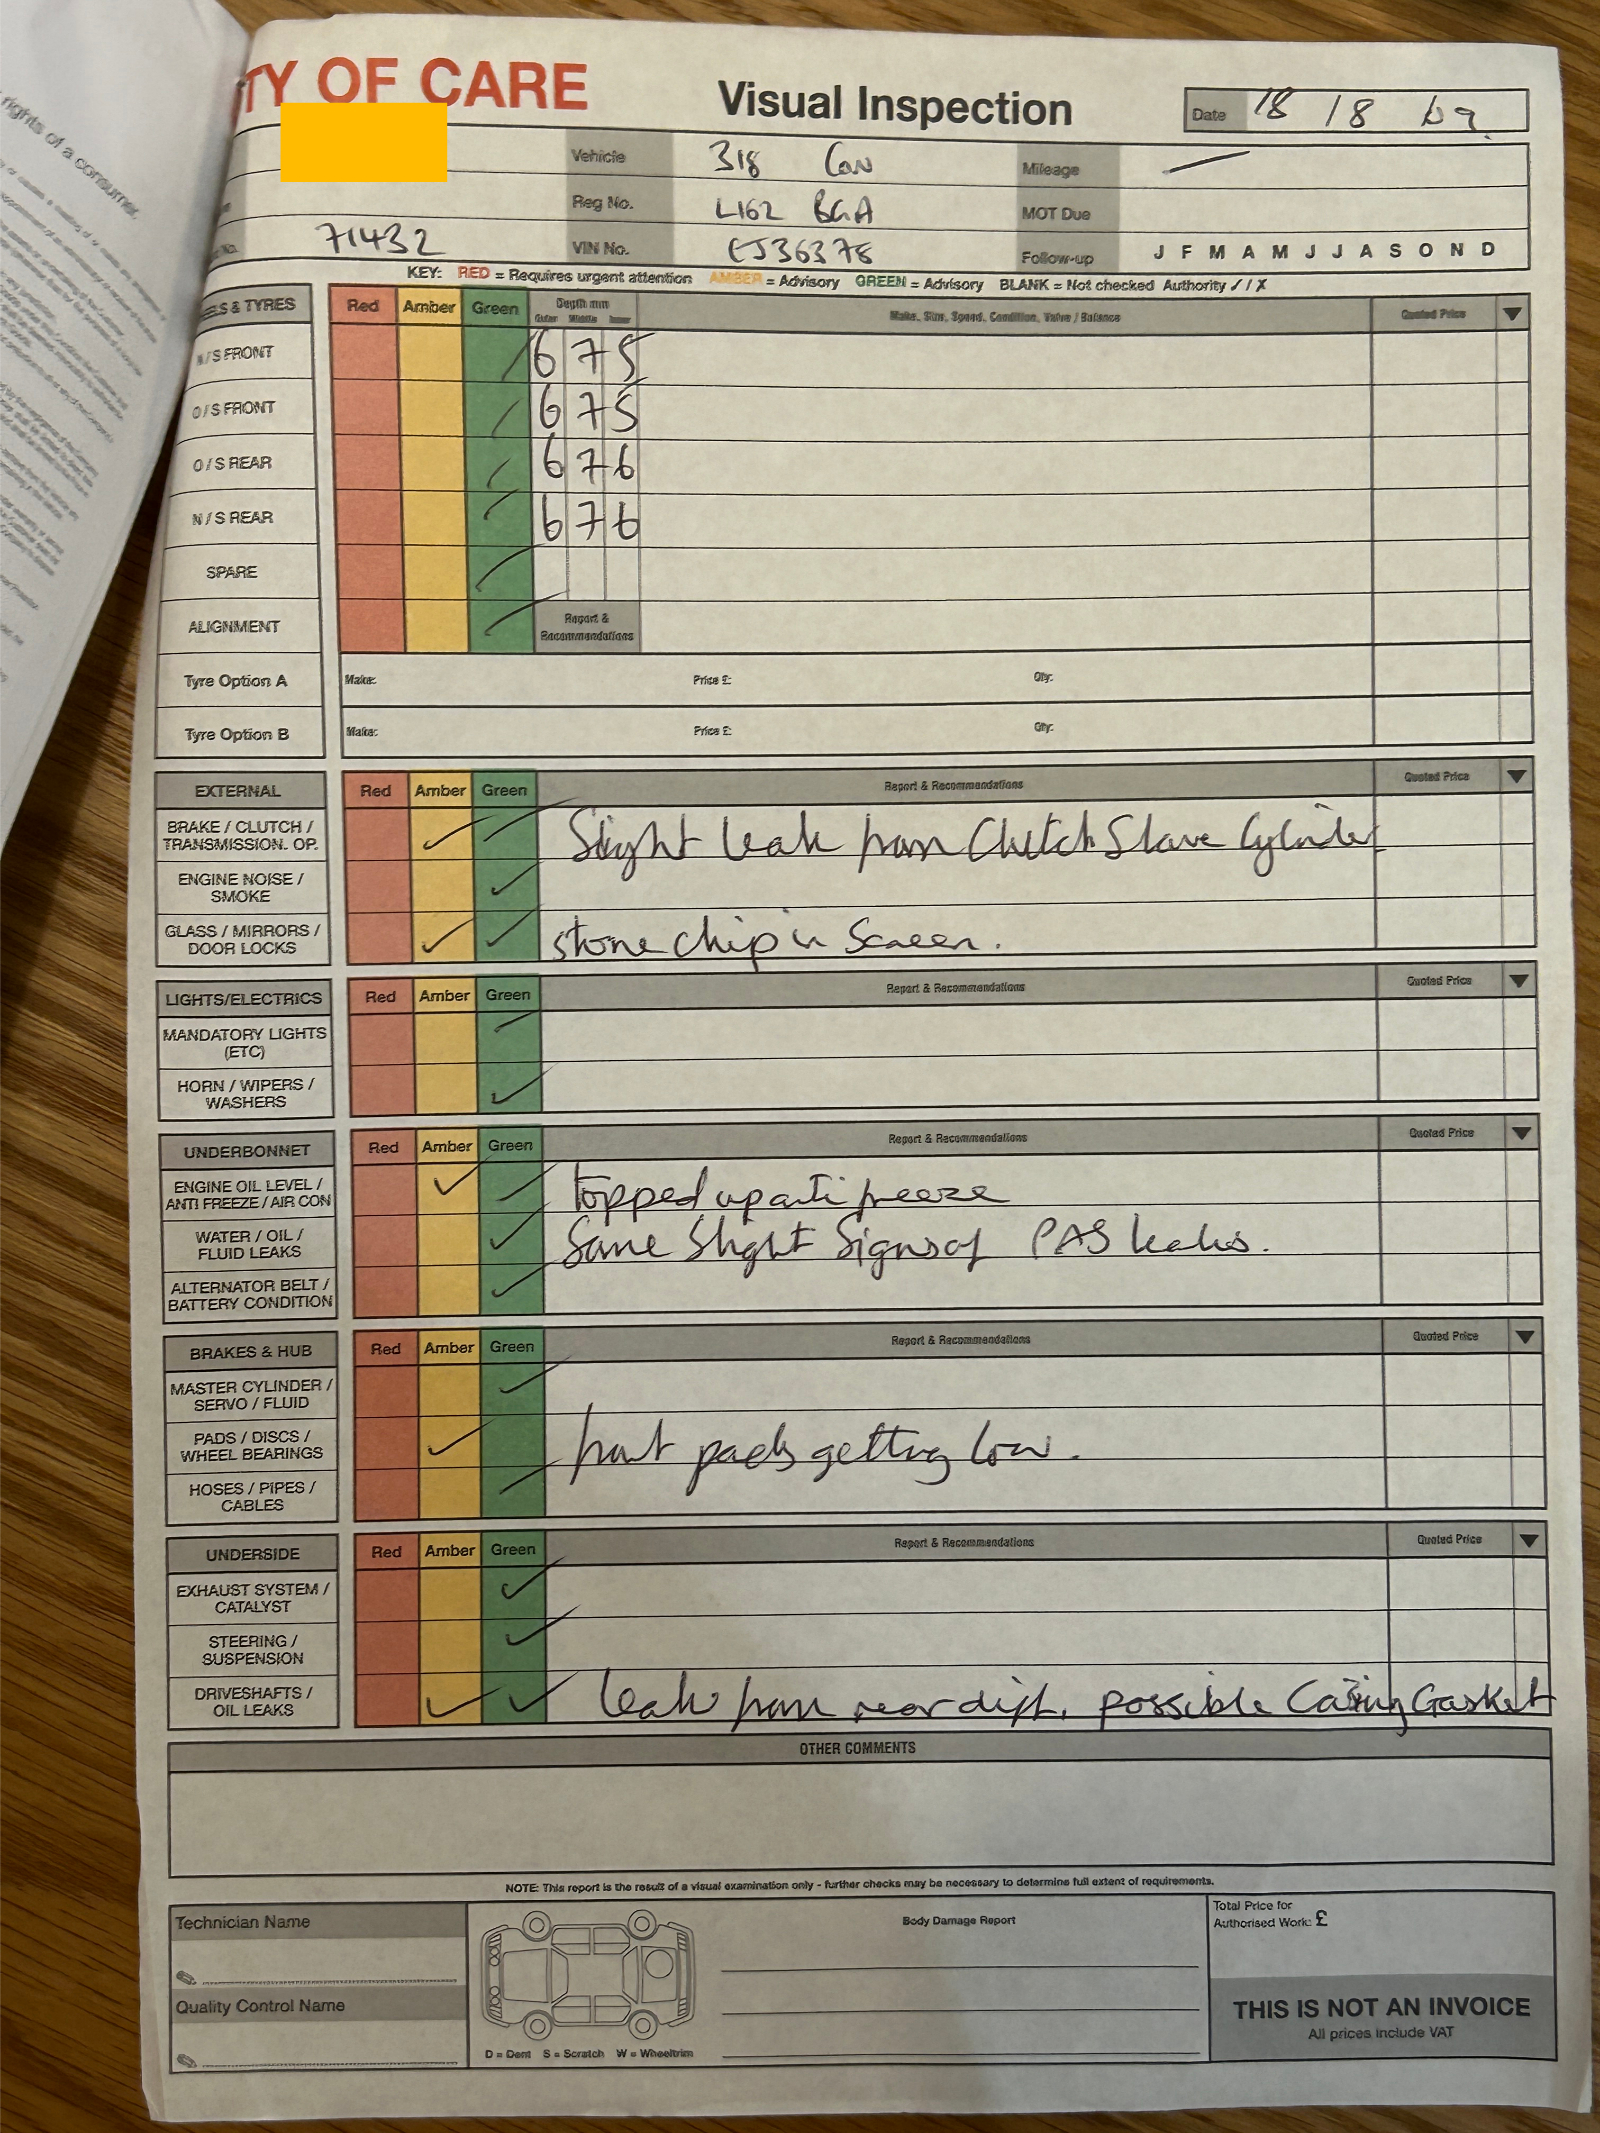 rights of a consumer.
TY OF CARE
Visual Inspection
Date 18 / 8 09.
Vehicle 318 Con Mileage —
Reg No. L162 BGA MOT Due
No. 71432 VIN No. EJ36378 Follow-up J F M A M J J A S O N D
KEY: RED = Requires urgent attention AMBER = Advisory GREEN = Advisory BLANK = Not checked Authority ✓ / ✗
ELS & TYRES Red Amber Green Depth mm Outer Middle Inner Make, Size, Speed, Condition, Valve / Balance Quoted Price ▼
N / S FRONT 6 7 5
O / S FRONT 6 7 5
O / S REAR 6 7 6
N / S REAR 6 7 6
SPARE
ALIGNMENT Report & Recommendations
Tyre Option A Make: Price £: Qty:
Tyre Option B Make: Price £: Qty:
EXTERNAL Red Amber Green Report & Recommendations Quoted Price ▼
BRAKE / CLUTCH / TRANSMISSION. OP. ✓ Slight leak from Clutch Slave Cylinder
ENGINE NOISE / SMOKE ✓
GLASS / MIRRORS / DOOR LOCKS ✓ ✓ stone chip in Screen.
LIGHTS/ELECTRICS Red Amber Green Report & Recommendations Quoted Price ▼
MANDATORY LIGHTS (ETC) ✓
HORN / WIPERS / WASHERS ✓
UNDERBONNET Red Amber Green Report & Recommendations Quoted Price ▼
ENGINE OIL LEVEL / ANTI FREEZE / AIR CON ✓ ✓ topped up anti freeze
WATER / OIL / FLUID LEAKS ✓ Some Slight Signs of PAS leaks.
ALTERNATOR BELT / BATTERY CONDITION ✓
BRAKES & HUB Red Amber Green Report & Recommendations Quoted Price ▼
MASTER CYLINDER / SERVO / FLUID ✓
PADS / DISCS / WHEEL BEARINGS ✓ front pads getting low.
HOSES / PIPES / CABLES ✓
UNDERSIDE Red Amber Green Report & Recommendations Quoted Price ▼
EXHAUST SYSTEM / CATALYST ✓
STEERING / SUSPENSION ✓
DRIVESHAFTS / OIL LEAKS ✓ ✓ leak from rear diff. possible Casing Gasket
OTHER COMMENTS
NOTE: This report is the result of a visual examination only - further checks may be necessary to determine full extent of requirements.
Technician Name
Quality Control Name
D = Dent S = Scratch W = Wheeltrim
Body Damage Report
Total Price for
Authorised Work: £
THIS IS NOT AN INVOICE
All prices include VAT